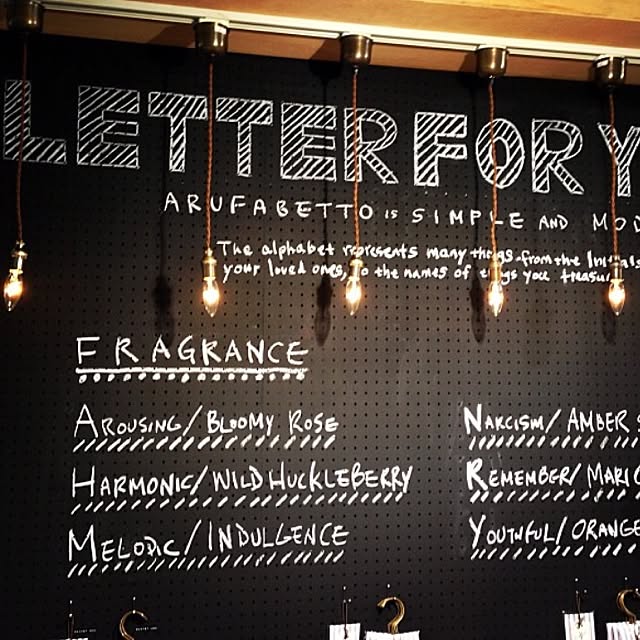 LETTERFORY
ARUFABETTO IS SIMPLE AND MOD
The alphabet represents many things from the Initials
your loved ones, to the names of things you treasu
FRAGRANCE
AROUSING/BLOOMY ROSE
HARMONIC/WILD HUCKLEBERRY
MELODIC/INDULGENCE
NARCISM/AMBER S
REMEMBER/MARI
YOUTHFUL/ORANGE